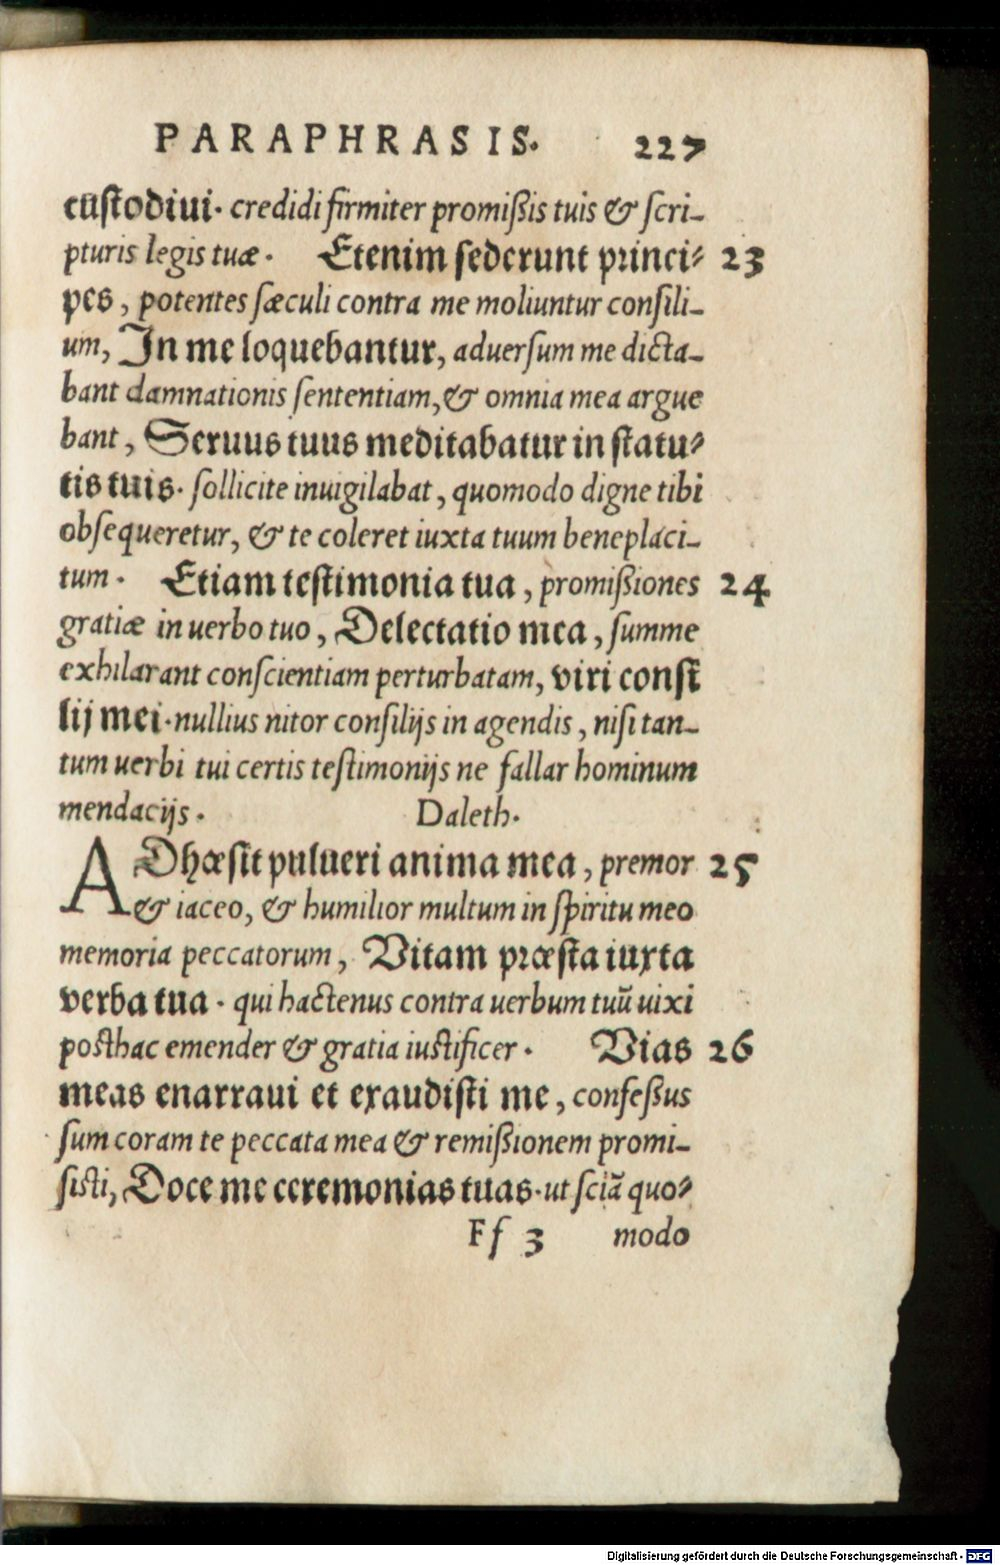 PARAPHRASIS. 227
custodiui. credidi firmiter promißis tuis & scri-
pturis legis tuæ. Etenim sederunt princi- 23
pes, potentes sæculi contra me moliuntur consili-
um, In me loquebantur, aduersum me dicta-
bant damnationis sententiam, & omnia mea argue
bant, Seruus tuus meditabatur in statu-
tis tuis. sollicite inuigilabat, quomodo digne tibi
obsequeretur, & te coleret iuxta tuum beneplaci-
tum. Etiam testimonia tua, promißiones 24
gratiæ in uerbo tuo, Delectatio mea, summe
exhilarant conscientiam perturbatam, viri consi
lij mei. nullius nitor consilijs in agendis, nisi tan-
tum uerbi tui certis testimonijs ne fallar hominum
mendacijs. Daleth.
ADhæsit pulueri anima mea, premor 25
& iaceo, & humilior multum in spiritu meo
memoria peccatorum, Vitam præsta iuxta
verba tua. qui hactenus contra uerbum tuũ uixi
posthac emender & gratia iustificer. Vias 26
meas enarraui et exaudisti me, confeßus
sum coram te peccata mea & remißionem promi-
sisti, Doce me ceremonias tuas. ut sciã quo-
Ff 3 modo
Digitalisierung gefördert durch die Deutsche Forschungsgemeinschaft - DFG